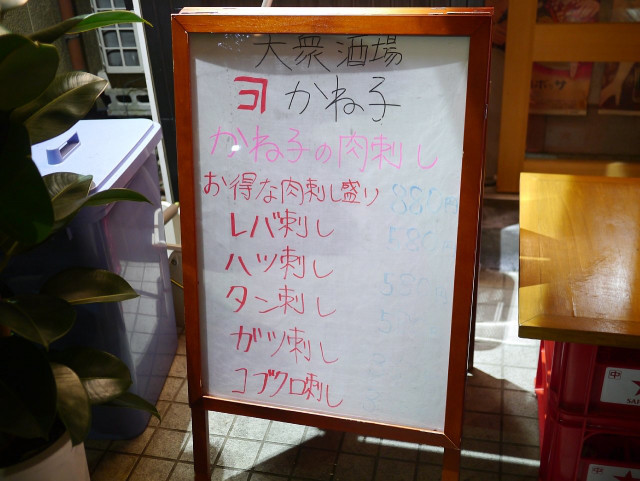 大衆酒場
ヨ かね子
かね子の肉刺し
お得な肉刺し盛り 880円
レバ刺し
ハツ刺し
タン刺し
ガツ刺し
コブクロ刺し
中
中